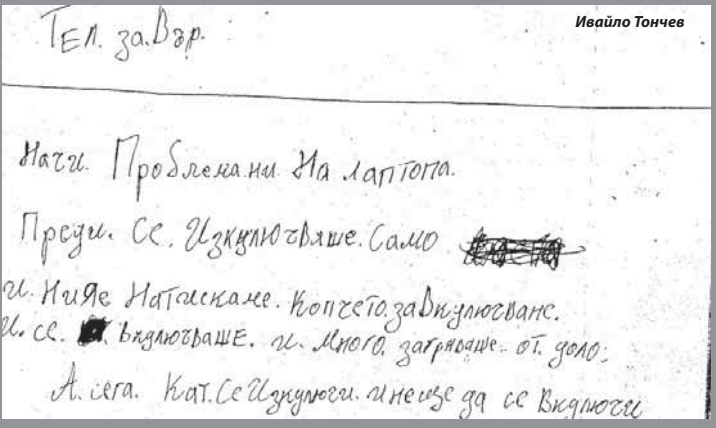 Ивайло Тончев
Тел. за. Вър.
Начи. Проблема. ни. На лаптопа.
Преди. се. Изкулючваше. само
и. Нийе Натискаме. копчето. за Вкулючване.
и. се. Вкулючваше. и. много. загряваше. от. доло.
А. сега. Кат. Се Изкулючи. и неще да се Вкулючи